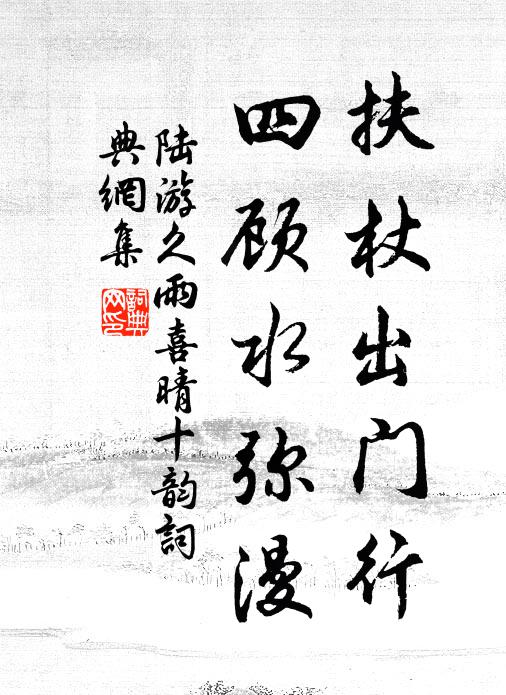 扶杖出门行
四顾水弥漫
陆游久雨喜晴十韵詞
典網集
詞典網印